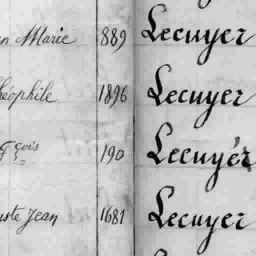 an Marie 889 Lecuyer
héophile 1896 Lecuyer
çois 190 Lecuyér
uste Jean 1681 Lecuyer